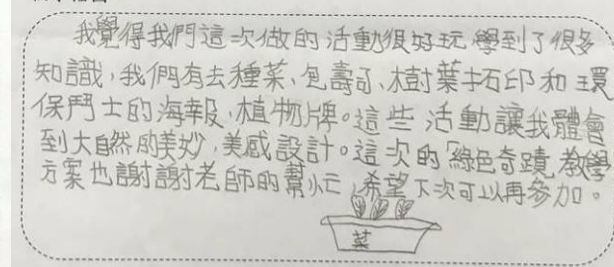 我覺得我們這次做的活動很好玩學到了很多
知識,我們有去種菜、包壽司、樹葉拓印和環
保鬥士的海報、植物牌。這些活動讓我體會
到大自然的美妙,美感設計。這次的「綠色奇蹟」教學
方案也謝謝老師的幫忙,希望下次可以再參加。
菜